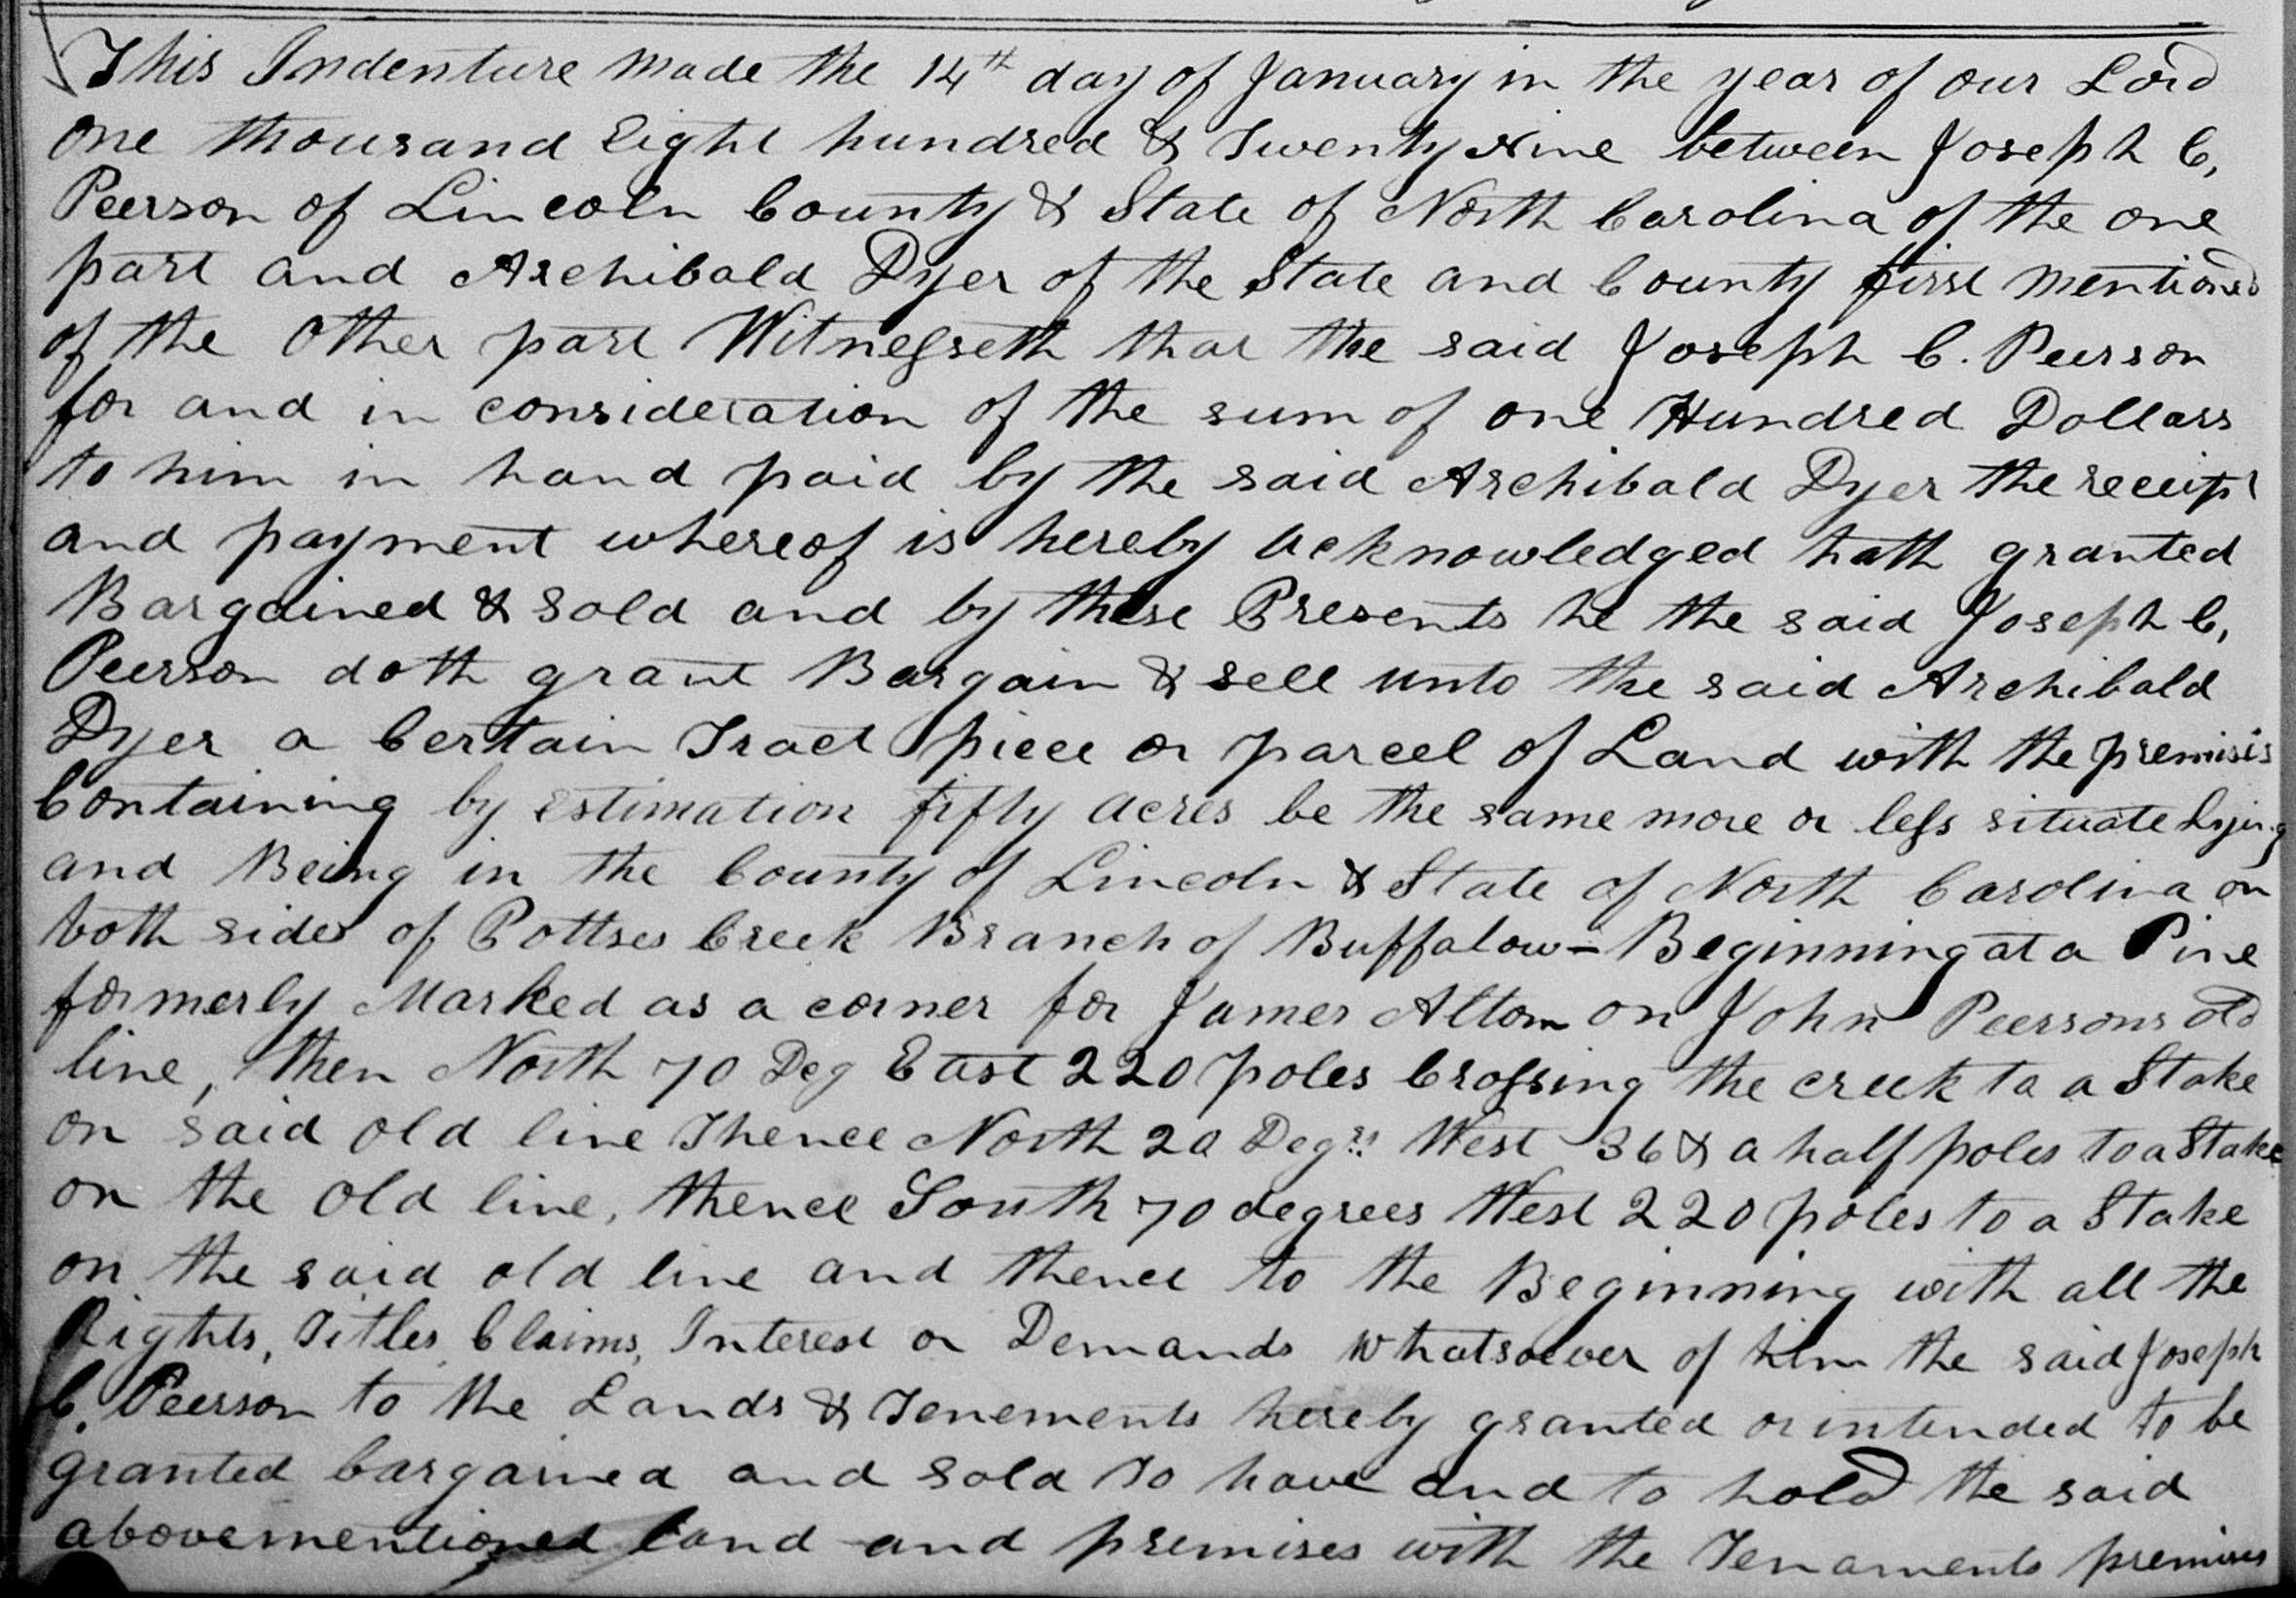 This Indenture made the 14th day of January in the year of our Lord
one thousand Eight hundred & Twenty Nine between Joseph C,
Peerson of Lincoln County & State of North Carolina of the one
part and Archibald Dyer of the State and County first mentioned
of the Other part Witnesseth that the said Joseph C. Peerson
for and in consideration of the sum of one Hundred Dollars
to him in hand paid by the said Archibald Dyer the receipt
and payment whereof is hereby acknowledged hath granted
Bargained & sold and by these Presents he the said Joseph C,
Peerson doth grant Bargain & sell unto the said Archibald
Dyer a Certain Tract piece or parcel of Land with the premisis
Containing by estimation fifty acres be the same more or less situate Lying
and Being in the County of Lincoln & State of North Carolina on
both sides of Pottses Creek Branch of Buffalow - Beginning at a Pine
formerly Marked as a corner for James Altom on John Peersons old
line, then North 70 Deg East 220 poles Crossing the creek to a Stake
on said old line Thence North 20 Degrs West 36 & a half poles to a Stake
on the old line, thence South 70 degrees West 220 poles to a Stake
on the said old line and thence to the Beginning with all the
Rights, Titles Claims, Interest or Demands whatsoever of him the said Joseph
C. Peerson to the Lands & Tenements hereby granted or intended to be
granted bargained and sold To have and to hold the said
abovementioned land and premises with the Tenaments premises